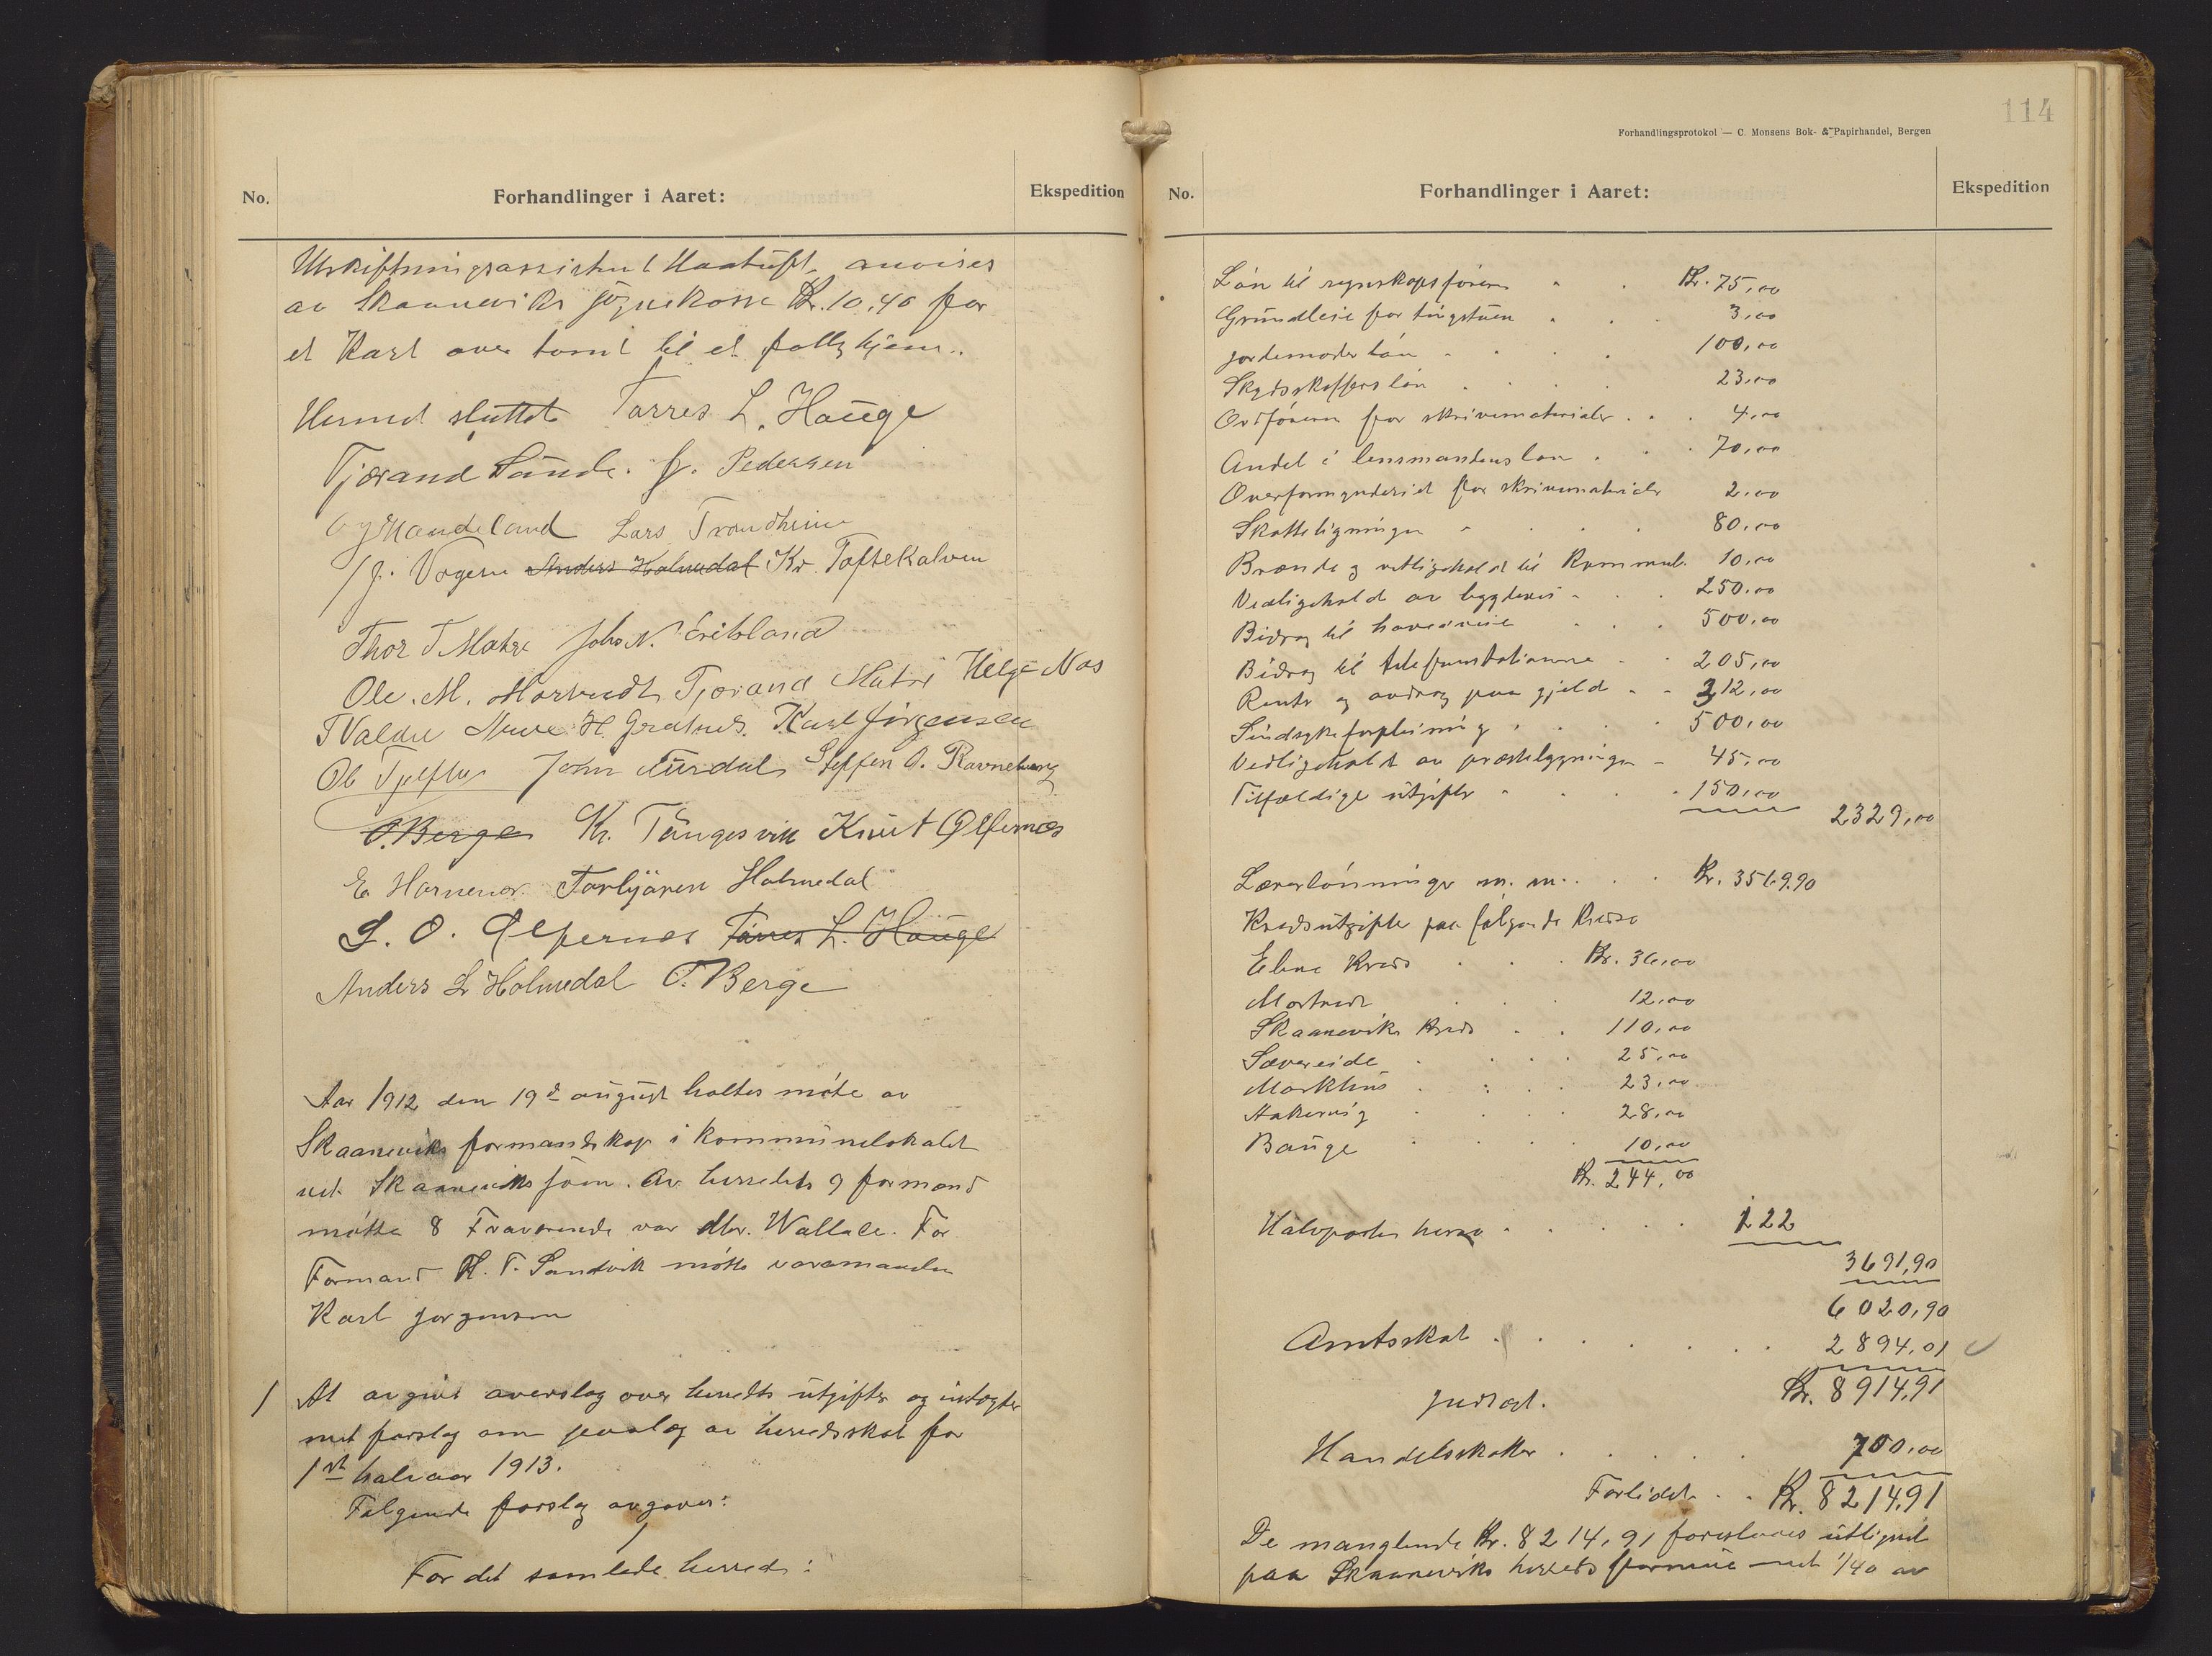 No.
Forhandlinger i Aaret:
Ekspedition
Utskiftningsassistent Haatuft anvises
av Skaaneviks sognekasse Kr. 10,40 for
et Kart over tomt til et folks hjem.
Hermed sluttet Tørres L. Hauge
Tjærand Sunde. J. Pedersen
Lars Trondheim
Anders Holmedal Kr. Toftekalven
Thor T Matre Johs N.
Ole. M. Mortvedt Tjærand Matre Helge Nes
H. Karl Jørgensen
Ol John Steffen O. Ravneberg
O. Berge Kr. Tungesvik Knut Ølfernes
E Torbjören Holmedal
S. O. Ølfernes Tørres L. Hauge
Anders L Holmedal O. Berge
Aar 1912 den 19d august holtes møte av
Skaaneviks formandskap i kommunelokalet
ved Skaaneviks sjøen. Av herredets 9 formænd
møtte 8 Fraværende var Mr. Wallace. For
Formand H. T. Sandvik møtte varamanden
Karl Jørgensen
1 At avgive overslag over herredets utgifter og indtægter
med forslag om paalæg av herredsskat for
1ste halvaar 1913.
Følgende forslag avgaves:
For det samlede herred:
114
Forhandlingsprotokol — C. Monsens Bok- & Papirhandel, Bergen
No.
Forhandlinger i Aaret:
Ekspedition
Løn til regnskapsføreren Kr. 75,00
Grundleie for tingstuen 3,00
Jordemoderløn 100,00
Skydsskafferløn 23,00
Ordføreren for skrivematerialer 4,00
Andel i lensmandens løn 70,00
Overformynderiet for skrivematerialer 2,00
Skatteligningen 80,00
Brænde og vedligehold til Kommunel. 10,00
Vedligehold av bygdevei 250,00
Bidrag til hovedveie 500,00
Bidrag til telefonstationerne 205,00
Renter og avdrag paa gjæld 312,00
Sindsykeforpleining 500,00
Vedligehold av præstebygningen 45,00
Tilfældige utgifter 150,00
2329,00
Lærerlønninger m. m. Kr. 3569,90
Kredsutgifter paa følgende Kredse
Ebne Kreds Kr. 36,00
Mortvedt 12,00
Skaaneviks Kreds 110,00
Sævereide 25,00
Markhus 23,00
Aakervig 28,00
Bauge 10,00
Kr. 244,00
Halvparten herav 122
3691,90
6020,90
Amtsskat 2894,01
Kr. 8914,91
Indtægt.
Handelsskatter 700,00
Forlidet Kr. 8214,91
De manglende Kr. 8214,91 foreslaaes utlignet
paa Skaaneviks herreds formue med 1/40 av